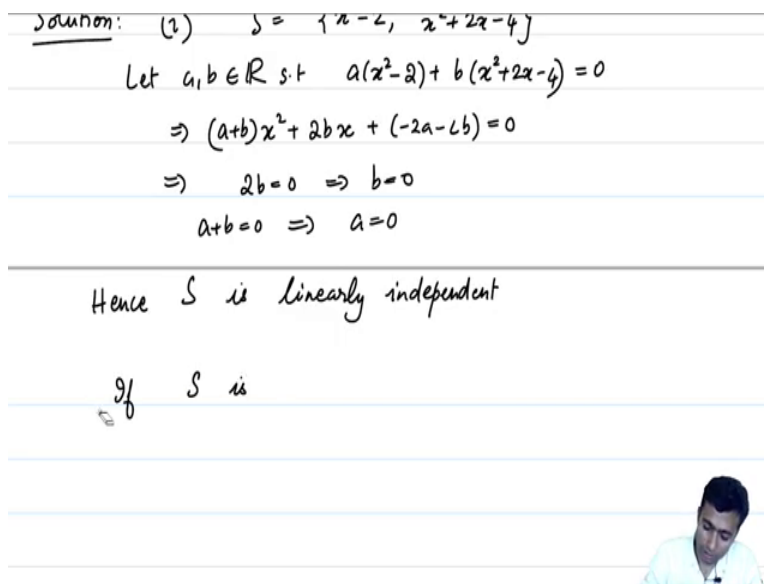 Solution: (2) S = {x - 2, x²+ 2x - 4}
Let a, b ∈ ℝ s.t a(x²-2) + b(x²+2x-4) = 0
⇒ (a+b)x² + 2bx + (-2a-4b) = 0
⇒ 2b=0 ⇒ b=0
a+b=0 ⇒ a=0
Hence S is linearly independent
If S is